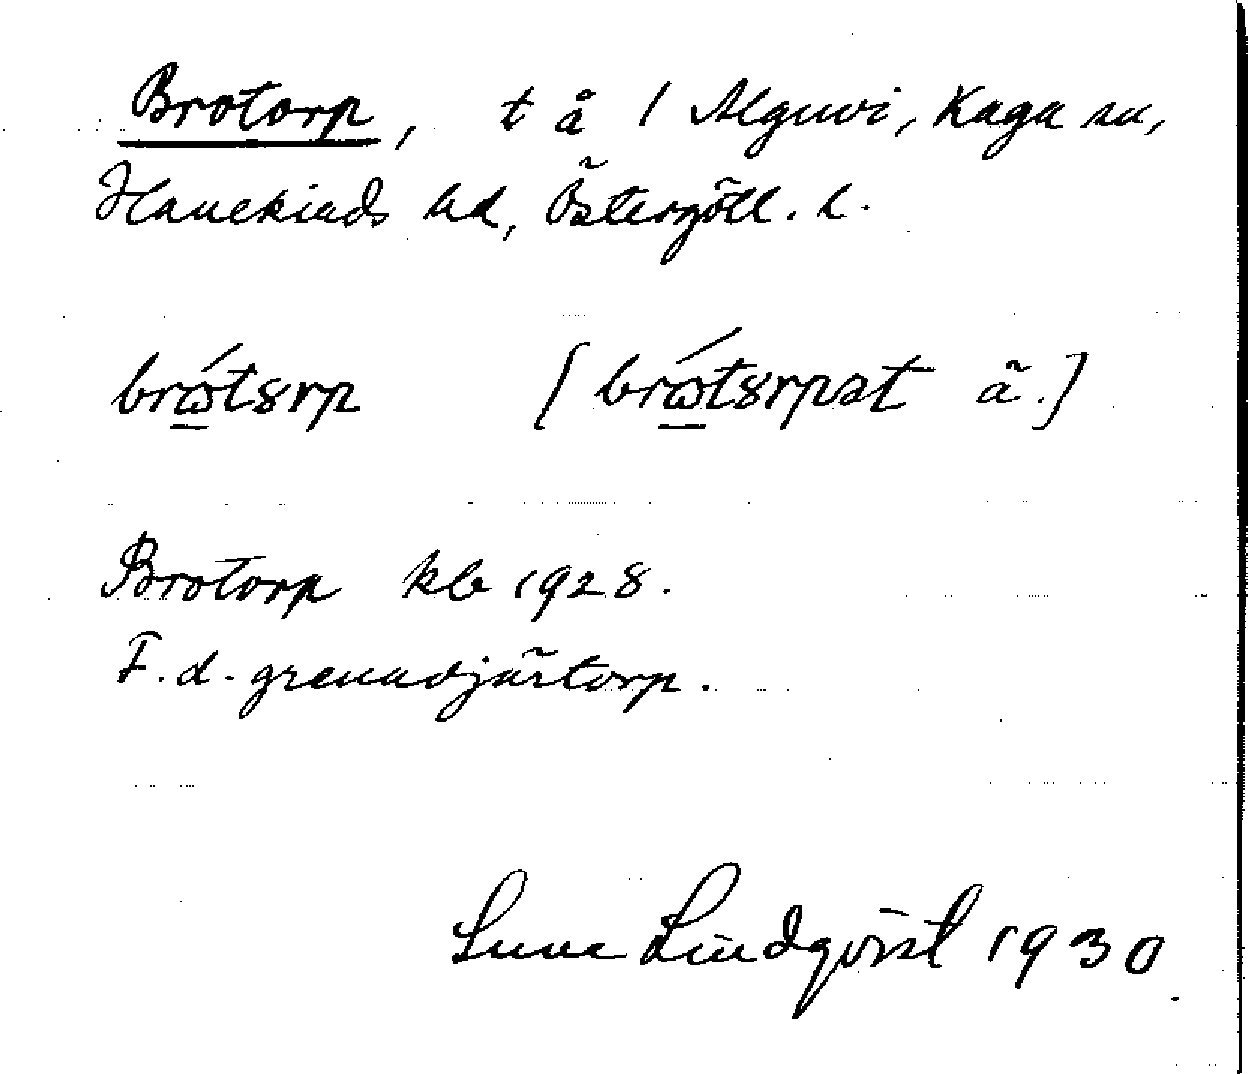 Brotorp, t å 1 Algusvi, Kaga sn,
Hanekinds hd, Östergötl. l.
brώtȣrp [brώtȣrpət ä.]
Brotorp kb 1928.
F.d. grenadjärtorp.
Sune Lindqvist 1930